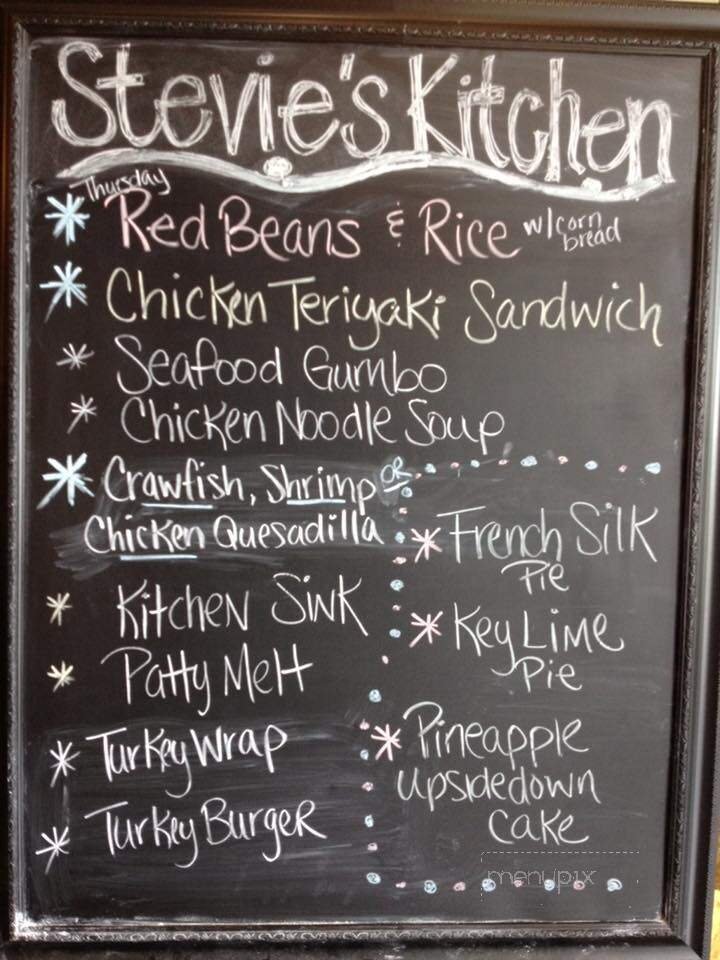 Stevie's Kitchen
Thursday
Red Beans & Rice w/corn bread
Chicken Teriyaki Sandwich
Seafood Gumbo
Chicken Noodle Soup
Crawfish, Shrimp OR
Chicken Quesadilla
Kitchen Sink
Patty Melt
Turkey Wrap
Turkey Burger
French Silk
Pie
Key Lime
Pie
Pineapple
Upsidedown
Cake
menupix